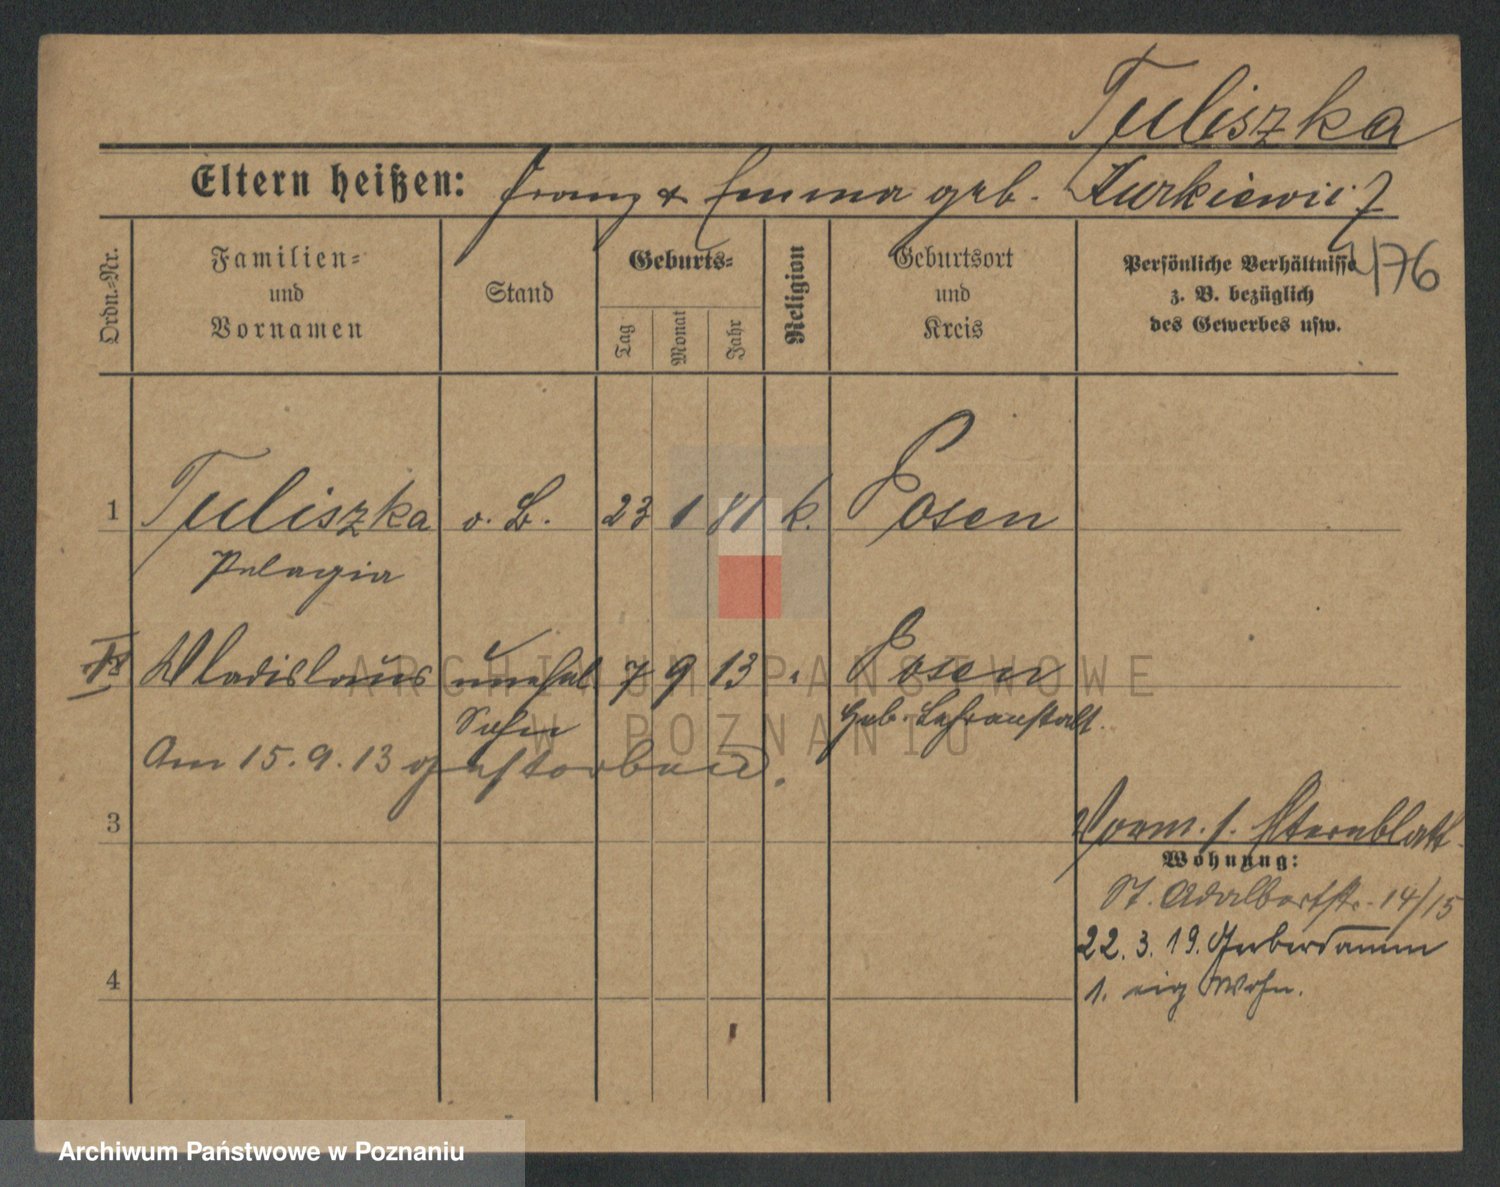 Tuliszka
Eltern heißen: Franz & Emma geb. Kurkiewicz
476
Ordn.-Nr.
Familien-
und
Vornamen
Stand
Geburts-
Tag
Monat
Jahr
Religion
Geburtsort
und
Kreis
Persönliche Verhältnisse
z. B. bezüglich
des Gewerbes usw.
1 Tuliszka o. B. 23 1 81 k. Posen
Pelagia
Wladislaus unehel. 7 9 13 Posen
Sohn
Geb. Lehranstalt.
Am 15.9.13 gestorben.
3
Vorm. s. Sternblatt.
Wohnung:
St. Adalbertstr. 14/15
22.3.19. Gerberdamm
1. eig Wohn.
4
ARCHIWUM PAŃSTWOWE
W POZNANIU
Archiwum Państwowe w Poznaniu